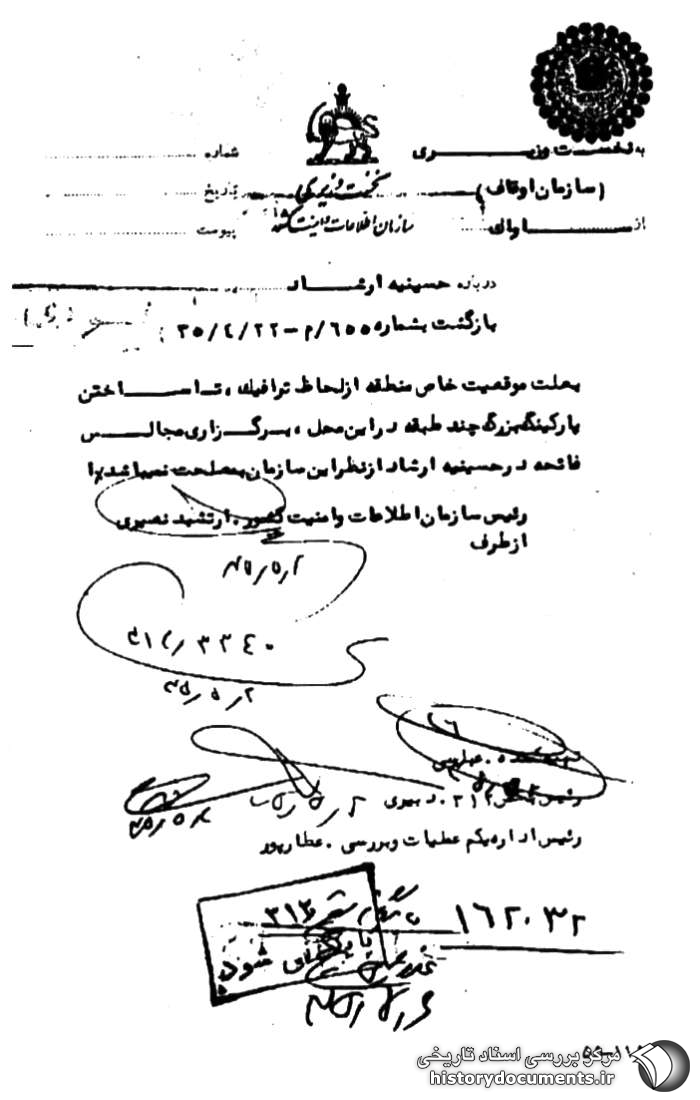 به نخست وزیری شماره
(سازمان اوقاف) نخست وزیری تاریخ
از ساواک سازمان اطلاعات و امنیت کشور پیوست
درباره حسینیه ارشاد
بازگشت بشماره ۶۵۵/م-۳۵/۴/۲۲
بعلت موقعیت خاص منطقه از لحاظ ترافیک ، تا ساختن
پارکینگ بزرگ چند طبقه در این محل ، برگزاری مجالس
فاتحه در حسینیه ارشاد از نظر این سازمان بمصلحت نمیباشد
رئیس سازمان اطلاعات و امنیت کشور . ارتشبد نصیری
از طرف
۳۵/۵/۲
۳۱۲/۳۲۴۰
۳۵/۵/۲
رئیس بخش ۳۱۲ . دبیری
رئیس اداره یکم عملیات و بررسی . عطارپور
۳۱۲
بایگانی شود
۱۶۲۰۳۲
مرکز بررسی اسناد تاریخی
historydocuments.ir